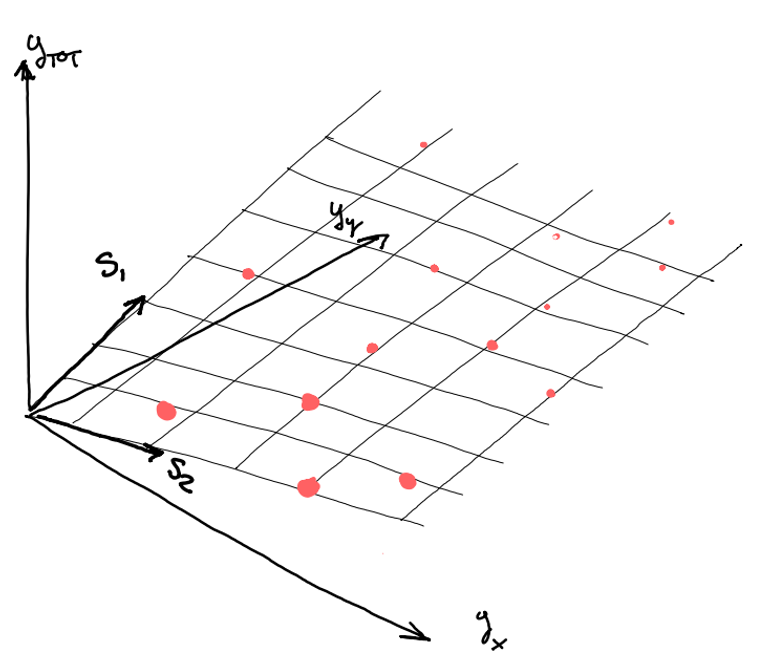 y_TOT
y_y
S_1
S_2
y_x